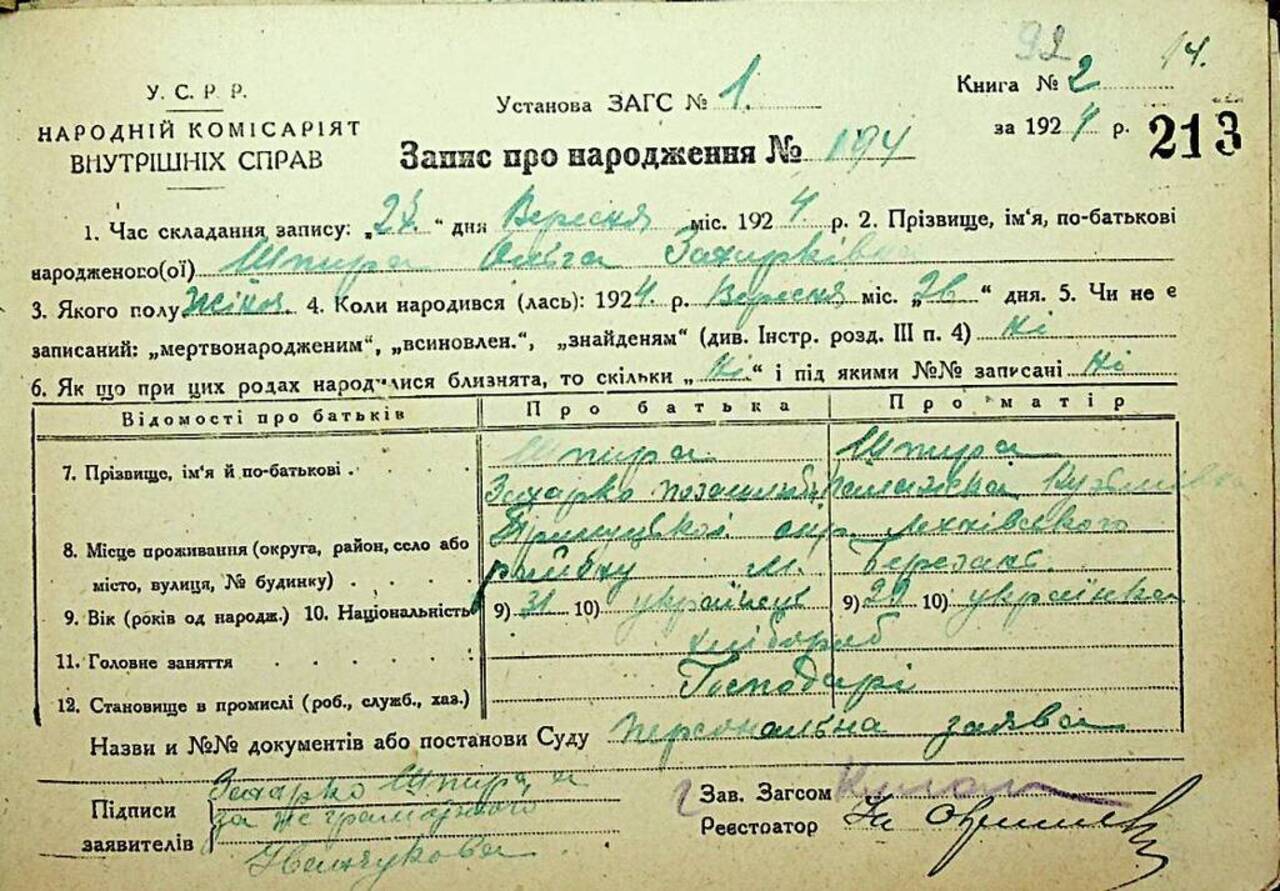 92 14.
У. С. Р. Р.
НАРОДНІЙ КОМІСАРІЯТ
ВНУТРІШНІХ СПРАВ
Установа ЗАГС № 1.
Книга № 2
за 1924 р. 213
Запис про народження № 194
1. Час складання запису: „ “ дня Вересня міс. 1924 р. 2. Прізвище, ім'я, по-батькові
народженого(ої) Шпира Ольга Захарківна
3. Якого полу Жіноч. 4. Коли народився (лась): 1924 р. Вересня міс. „26“ дня. 5. Чи не є
записаний: „мертвонародженим“, „всиновлен.“, „знайденям“ (див. Інстр. розд. III п. 4) Ні
6. Як що при цих родах народилися близнята, то скільки „Ні“ і під якими №№ записані Ні
Відомості про батьків Про батька Про матір
7. Прізвище, ім'я й по-батькові . Шпира Шпира
Захарко Кузьмівна
8. Місце проживання (округа, район, село або Прилуцької окр.
місто, вулиця, № будинку) . . . . району м. Березань.
9. Вік (років од народж.) 10. Національність 9) 31 10) українець 9) 29 10) українка
11. Головне заняття . . . . . . хлібороб
12. Становище в промислі (роб., служб., хаз.) Господарі
Назви и №№ документів або постанови Суду персональна заява
Підписи заявителів Захарко Шпира, а
за неграмотного
Зав. Загсом
Реєстратор